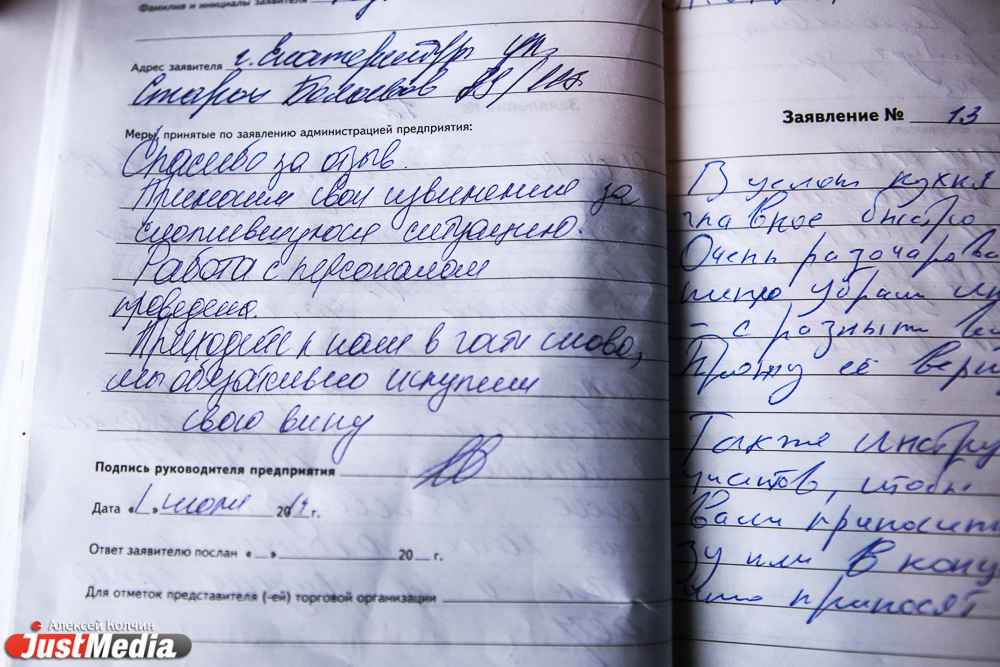 Фамилия и инициалы заявителя
Адрес заявителя г. Екатеринбург ул.
Старых Большевиков
Меры, принятые по заявлению администрацией предприятия:
Спасибо за отзыв.
Приносим свои извинения за
сложившуюся ситуацию.
Работа с персоналом
проведена.
Приходите к нам в гости снова,
мы обязательно искупим
свою вину
Подпись руководителя предприятия
Дата « 1 » июля 2014 г.
Ответ заявителю послан « » 20 г.
Для отметок представителя (-ей) торговой организации
Алексей Колчин
JustMedia
Заявление № 13
кухня
главное быстро
Очень разочарова
убрали
- с разными
Прошу её верн
Также
чтобы
Вам приносит
зу или в конц
что приносят